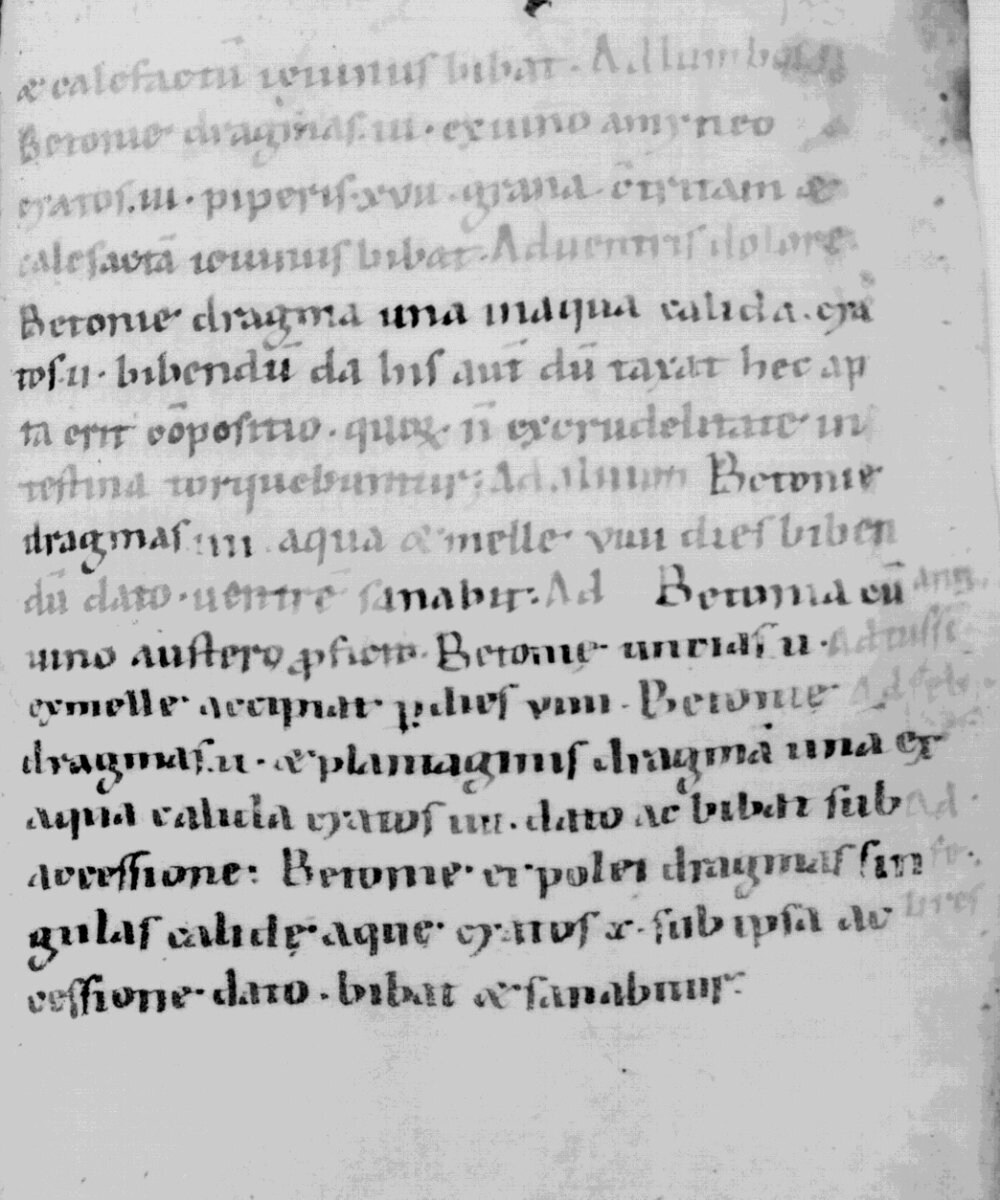 & calefactū ieiunus bibat. Ad lumbos
Betonie dragmas .iii. ex uino amyneo
cyatos .iii. piperis xvii. grana c̄tritam &
calefactā ieiunus bibat. Ad uentris dolore
Betonie dragma una in aqua calida. cya
tos .ii. bibendū da his aut̄ dū taxat hec ap
ta erit cōpositio. quoꝝ n̄ ex crudelitate in
testina torquebuntur; Ad Betonie
dragmas iiii aqua & melle viiii dies biben
dū dato. uentrē sanabit. Ad Betonia cū
uino austero ꝓficit. Betonie uncias ii. Ad tussē
ex melle accipiat ꝑ dies viiii. Betonie
dragmas .ii. & plantaginis dragmā una ex
aqua calida cyatos iiii. dato ac bibat sub Ad
accessione: Betonie et polei dragmas sin
gulas calidę aque cyatos x. sub ipsa ac
cessione dato. bibat & sanabitur.